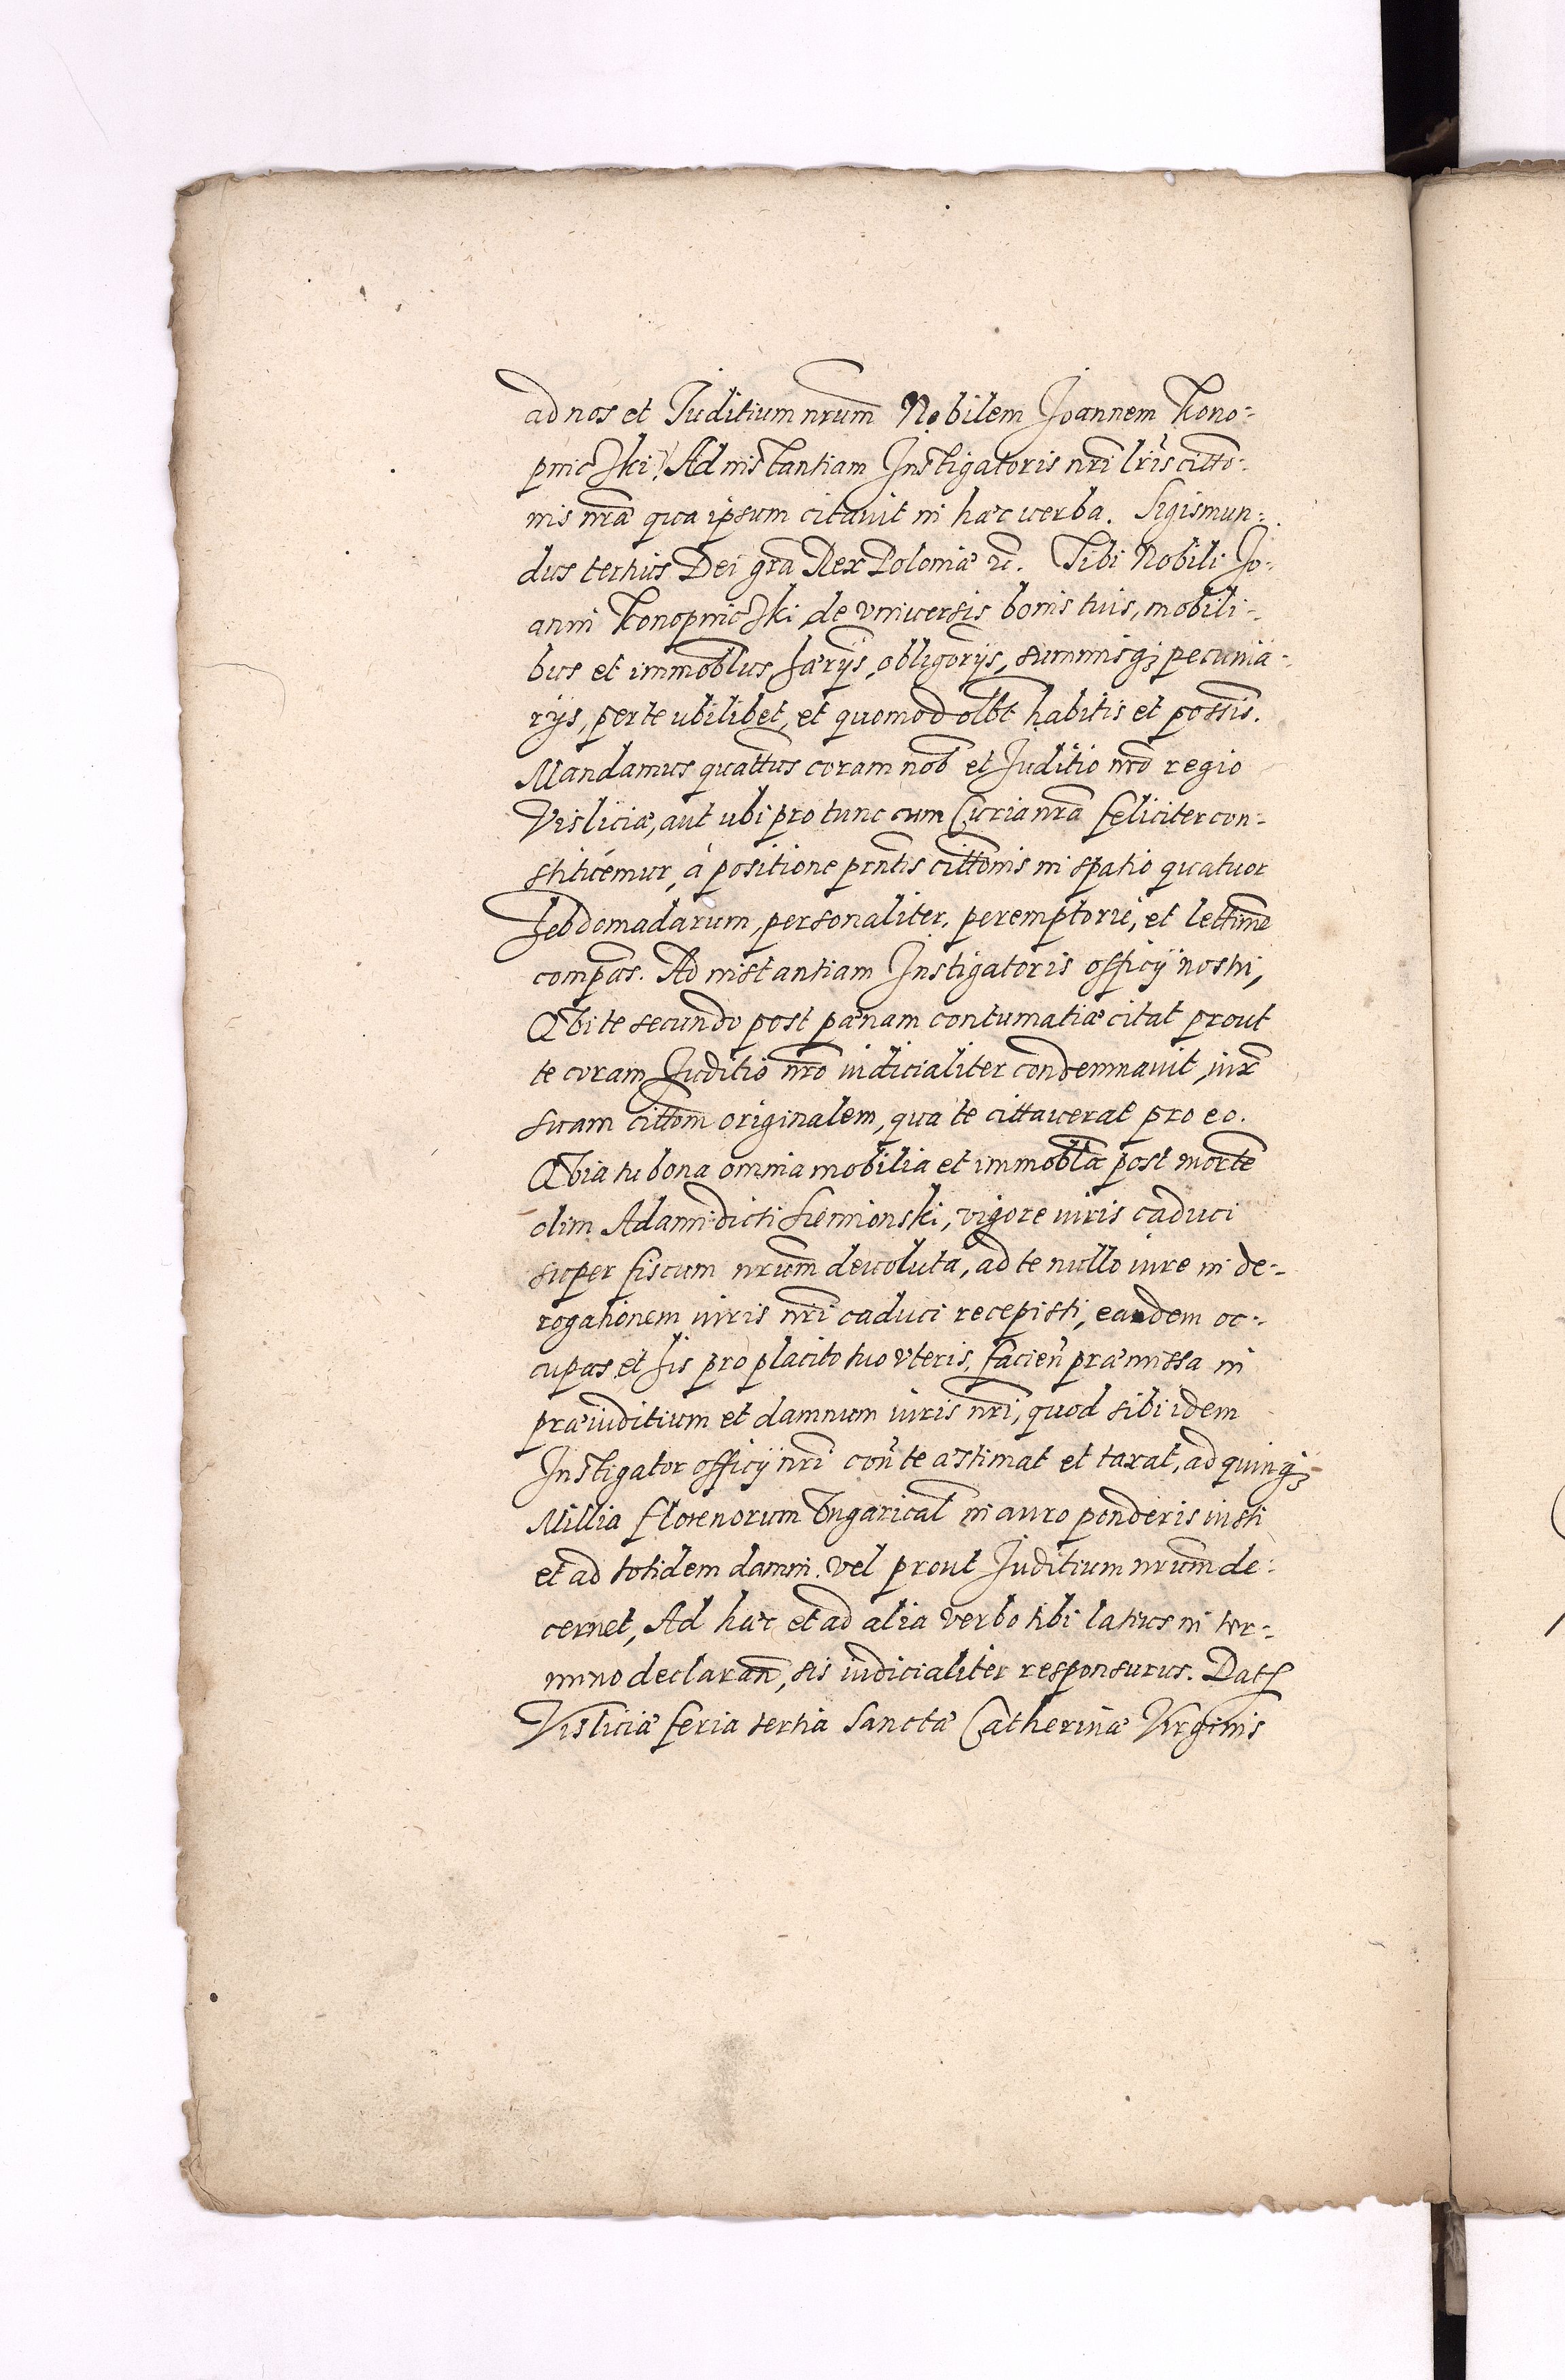 ad nos et Juditium nrum Nobilem Joannem Kono:
pnicski. Ad instantiam Instigatoris nri lris citto:
nis nra qua ipsum citauit in hæc uerba. Sigismun:
dus tertius Dei gra Rex Poloniæ &c. Tibi Nobili Jo:
anni Konopnicski de vniuersis bonis tuis, mobili:
bus et immoblus hærijs, obligorijs, summisq; pecunia:
rijs, per te ubilibet, et quomodolbt habitis et possis.
Mandamus quattus coram nob et Juditio nro regio
Visliciæ, aut ubi pro tunc cum Curia nra feliciter con:
stituemur, à positione pntis cittonis in spatio quatuor
hebdomadarum, personaliter, peremptorie, et lettime
compas. Ad instantiam Instigatoris officij nostri,
Qui te secundo post pænam contumatiæ citat prout
te coram Juditio nro iudicialiter condemnauit, iux
suam cittom originalem, qua te cittauerat pro eo.
Quia tu bona omnia mobilia et immobla post morte
olim Adami dicti Siemionski, vigore iuris caduci
super fiscum nrum deuoluta, ad te nullo iure in de:
rogationem iuris nri caduci recepisti, eandem oc:
cupas et his pro placito tuo vteris, facien præmissa in
præiuditium et damnum iuris nri, quod sibi idem
Instigator officij nri con te æstimat et taxat, ad quinq;
Millia florenorum Vngarical in auro ponderis iusti
et ad totidem damni. Vel prout Juditium nrum de:
cernet, Ad hæc et ad alia verbo tibi latius in ter:
mino declaran, sis iudicialiter responsurus. Dat
Visliciæ feria tertia Sanctæ Catherinæ Virginis